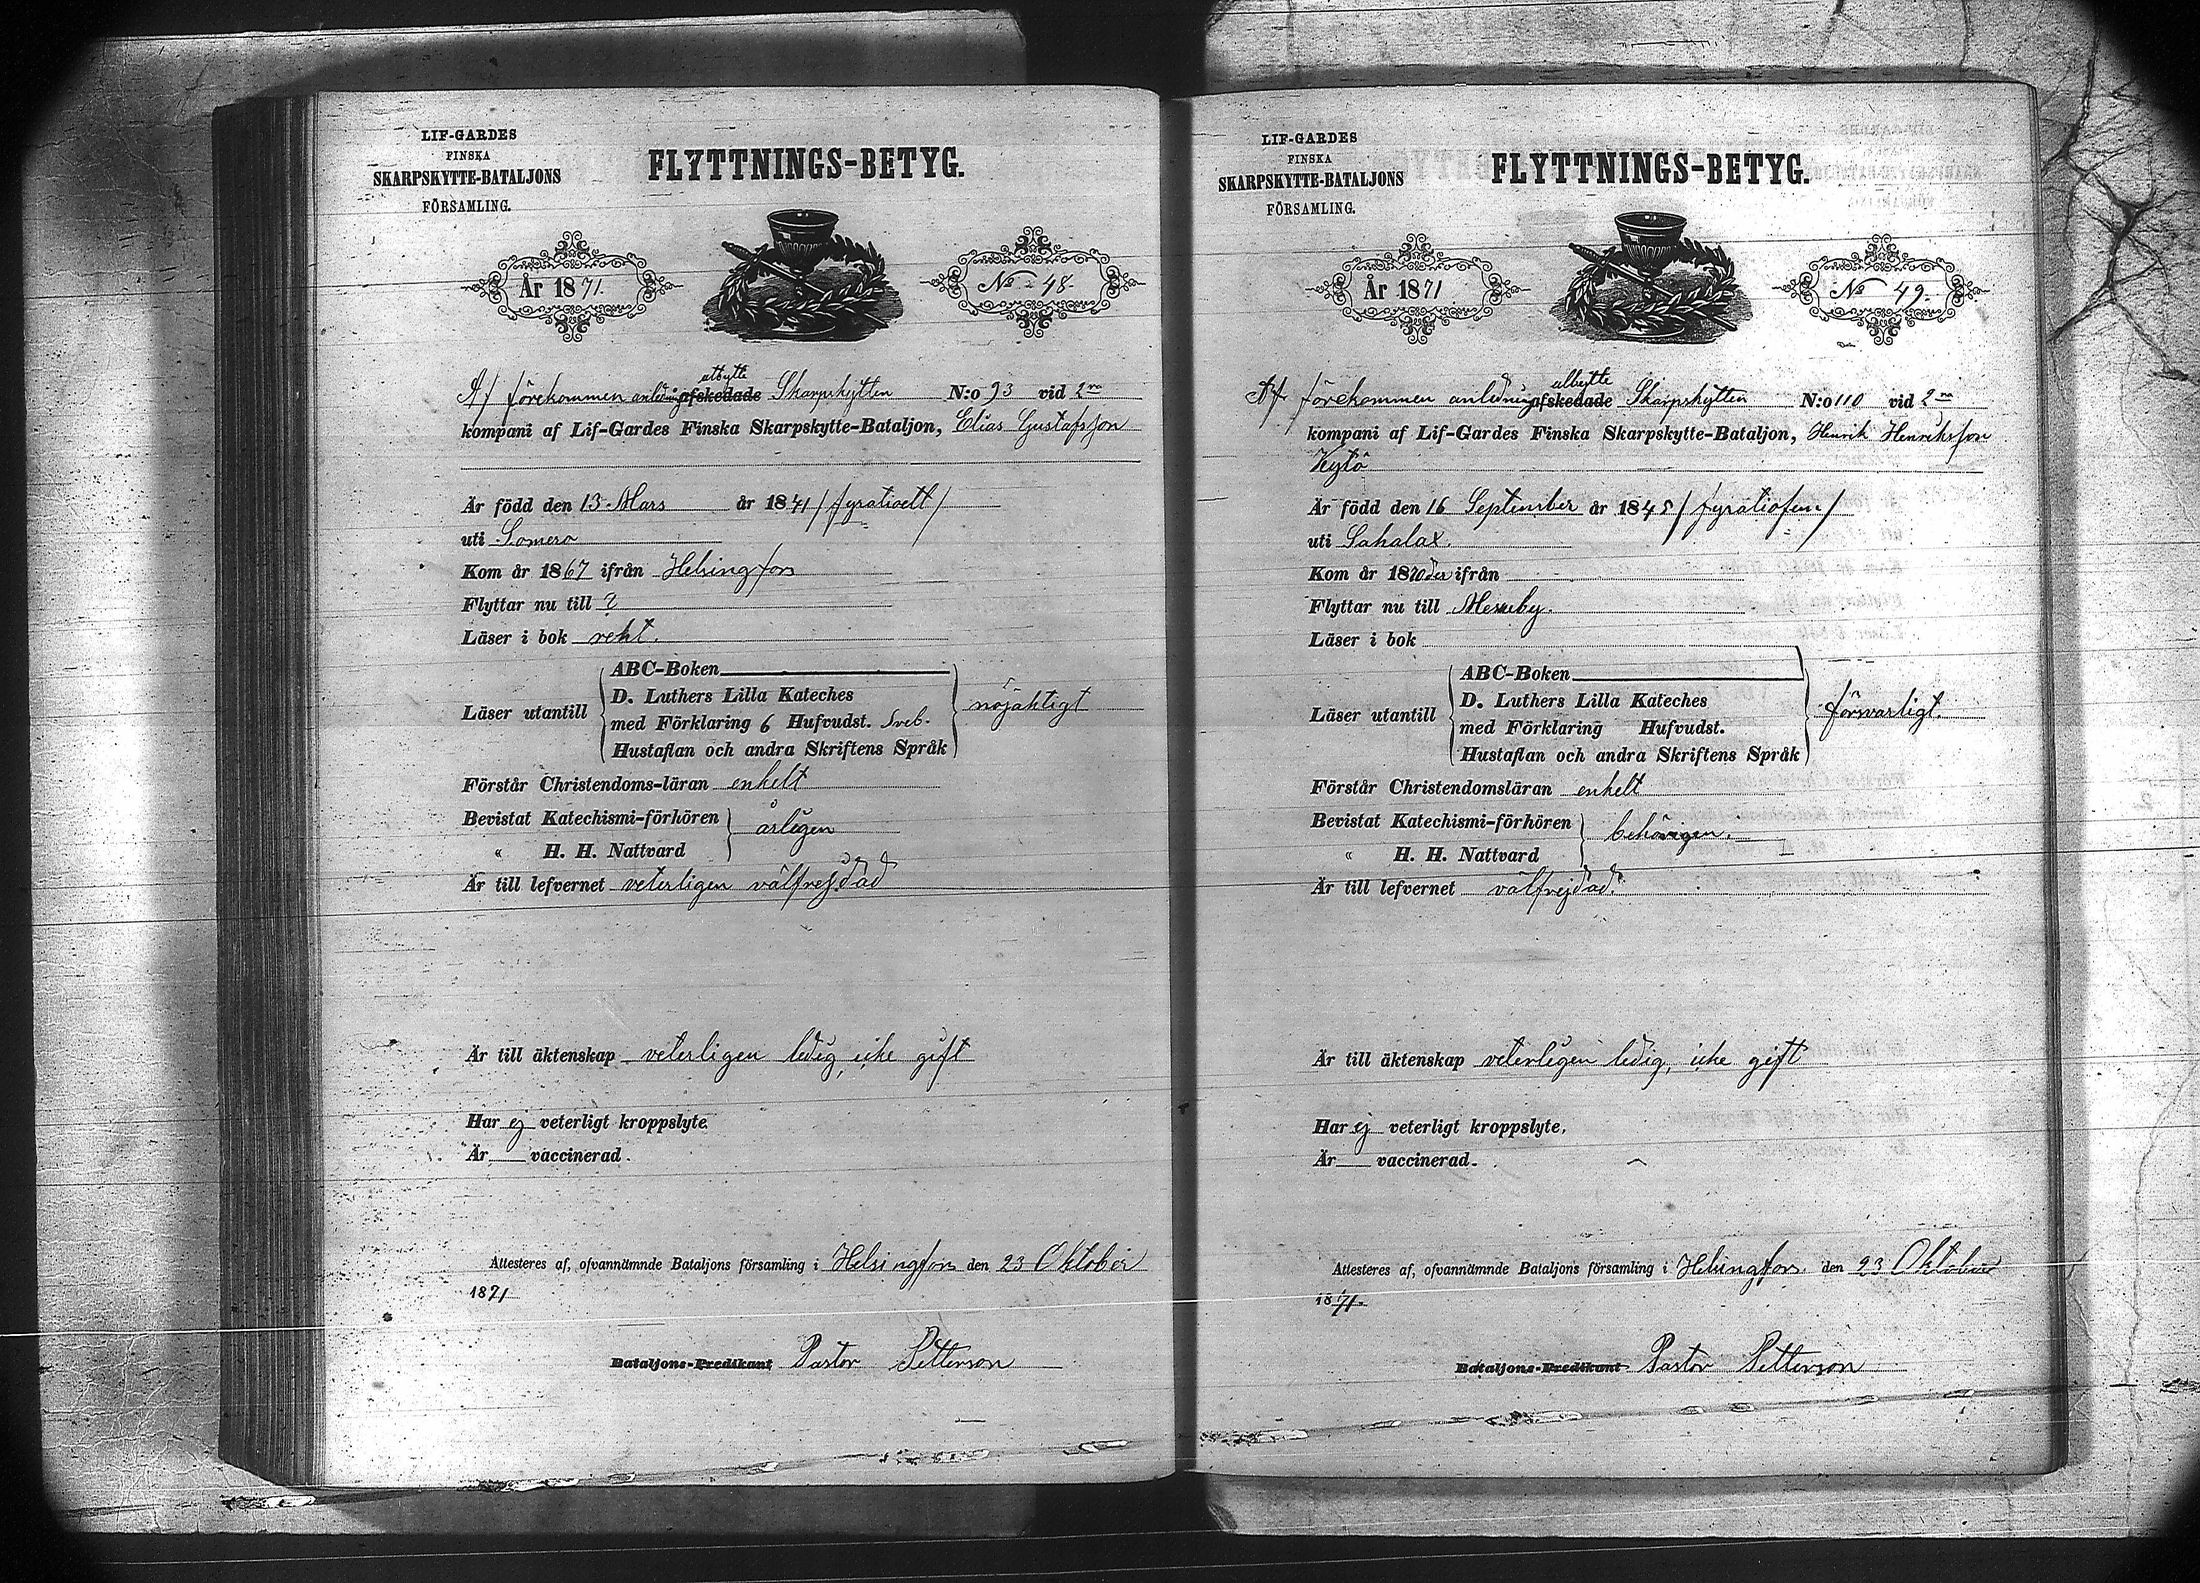 LIF-GARDES
FINSKA
SKARPSKYTTE-BATALJONS
FÖRSAMLING.
FLYTTNINGS-BETYG.
År 1871.
No 48.
utbytte
Af förekommen anledning afskedade Skarpskytten N:o 93 vid 2ra
kompani af Lif-Gardes Finska Skarpskytte-Bataljon, Elias Gustafsson
Är född den 13 Mars år 1841 / fyrationett /
uti Somero
Kom år 1867 ifrån Helsingfors
Flyttar nu till ?
Läser i bok rent.
Läser utantill
ABC-Boken
D. Luthers Lilla Kateches
med Förklaring 6 Hufvudst. Sveb.
Hustaflan och andra Skriftens Språk
nöjaktigt
Förstår Christendoms-läran enkelt
Bevistat Katechismi-förhören
« H. H. Nattvard
årligen
Är till lefvernet veterligen välfrejdad
Är till äktenskap veterligen ledig, icke gift
Har ej veterligt kroppslyte.
Är vaccinerad.
Attesteres af, ofvannämnde Bataljons församling i Helsingfors den 23 Oktober
1871
Bataljons-Predikant Pastor Petterson
LIF-GARDES
FINSKA
SKARPSKYTTE-BATALJONS
FÖRSAMLING.
FLYTTNINGS-BETYG.
År 1871
No 49.
utbytte
Af förekommen anledning afskedade Skarpskytten N:o 110 vid 2ra
kompani af Lif-Gardes Finska Skarpskytte-Bataljon, Henrik Henriksson
Kytö
Är född den 16 September år 1845 / fyratiofem /
uti Sahalax.
Kom år 1870 ifrån
Flyttar nu till Messuby.
Läser i bok
Läser utantill
ABC-Boken
D. Luthers Lilla Kateches
med Förklaring Hufvudst.
Hustaflan och andra Skriftens Språk
försvarligt.
Förstår Christendomsläran enkelt
Bevistat Katechismi-förhören
« H. H. Nattvard
behörigen.
Är till lefvernet välfrejdad.
Är till äktenskap veterligen ledig, icke gift
Har ej veterligt kroppslyte.
Är vaccinerad.
Attesteres af, ofvannämnde Bataljons församling i Helsingfors den 23 Oktober
1871.
Bataljons-Predikant Pastor Petterson